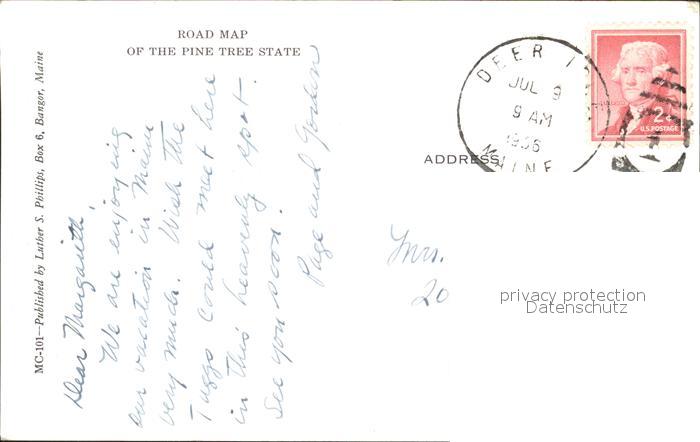 ROAD MAP
OF THE PINE TREE STATE
MC-101—Published by Luther S. Phillips, Box 6, Bangor, Maine
Dear Margarieth,
We are enjoying
our vacation in Maine
very much. Wish the
Taggs could meet here
in this heavenly spot.
See you soon.
Page and Gordon
DEER I
JUL 9
9 AM
1956
MAINE
2¢
U.S. POSTAGE
ADDRESS
Mrs.
20
privacy protection
Datenschutz